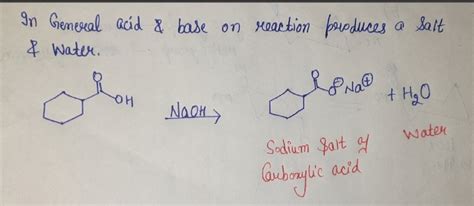 In General acid & base on reaction produces a Salt
& Water.
O
OH
NaOH
O
O⊖ Na⊕
+ H₂O
Sodium Salt of
Carboxylic acid
Water